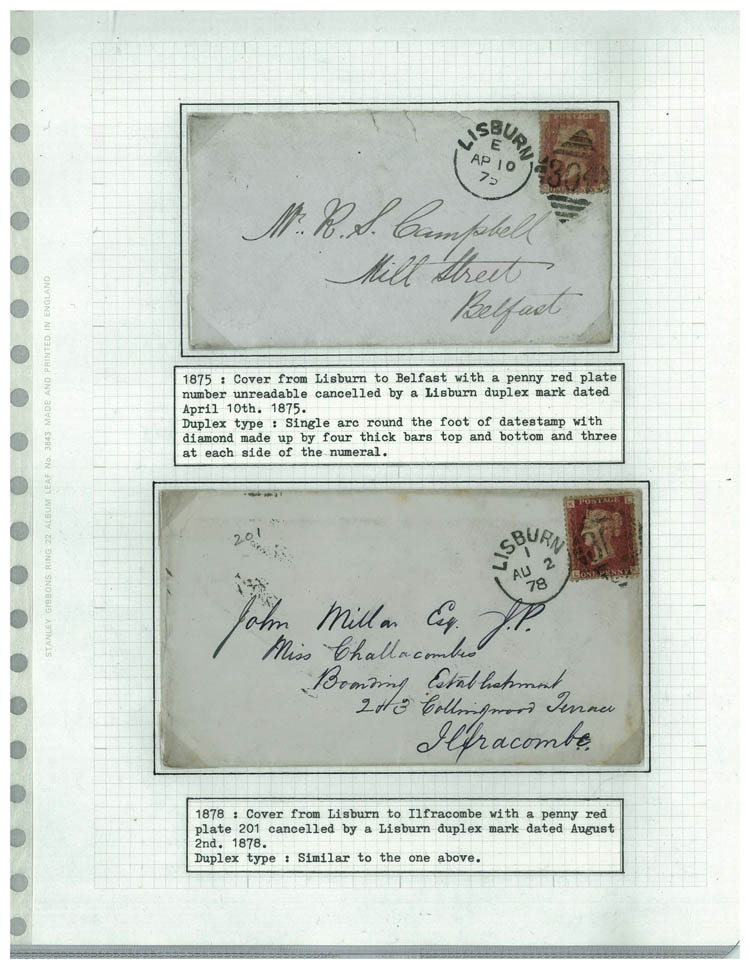 STANLEY GIBBONS RING 22 ALBUM LEAF No. 3843 MADE AND PRINTED IN ENGLAND
LISBURN
E
AP 10
75
POSTAGE
304
Mr. R. S. Campbell
Mill Street
Belfast
1875 : Cover from Lisburn to Belfast with a penny red plate
number unreadable cancelled by a Lisburn duplex mark dated
April 10th. 1875.
Duplex type : Single arc round the foot of datestamp with
diamond made up by four thick bars top and bottom and three
at each side of the numeral.
201
LISBURN
1
AU 2
78
POSTAGE
ONE PENNY
John Millar Esq. J.P.
Miss Challacombes
Boarding Establishment
2 & 3 Collingwood Terrace
Ilfracombe.
1878 : Cover from Lisburn to Ilfracombe with a penny red
plate 201 cancelled by a Lisburn duplex mark dated August
2nd. 1878.
Duplex type : Similar to the one above.